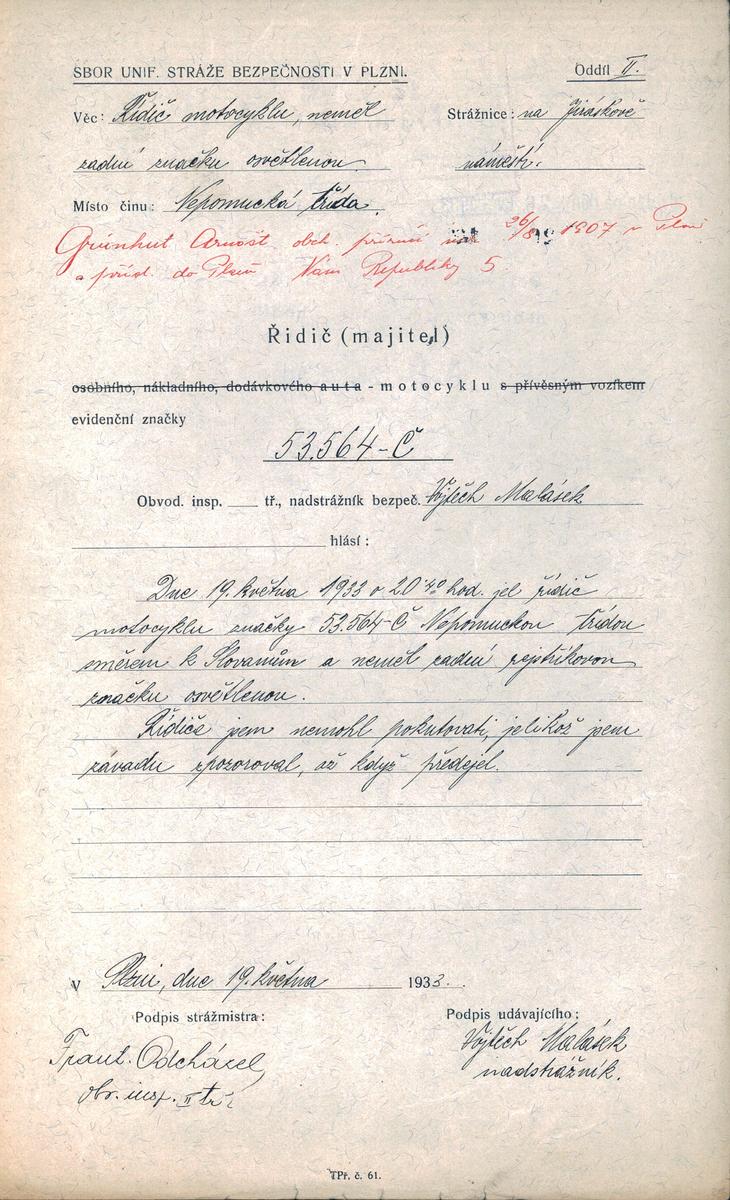 SBOR UNIF. STRÁŽE BEZPEČNOSTI V PLZNI. Oddíl II.
Věc: Řidič motocyklu, neměl Strážnice: na Jiráskově
zadní značku osvětlenou. náměstí.
Místo činu: Nepomucká třída.
Grünhut Arnošt obch. příručí nar. 26/8 1907 v Plzni
a přísl. do Plzně Nám Republiky 5
Řidič (majitel)
osobního, nákladního, dodávkového auta - motocyklu s přívěsným vozíkem
evidenční značky
53.564-Č
Obvod. insp. tř., nadstrážník bezpeč. Vojtěch Malásek
hlásí:
Dne 19. května 1933 o 20·40 hod. jel řidič
motocyklu značky 53.564-Č Nepomuckou třídou
směrem k Slovanům a neměl zadní rejstříkovou
značku osvětlenou.
Řidiče jsem nemohl pokutovati, jelikož jsem
závadu zpozoroval, až když předejel.
V Plzni, dne 19. května 1933.
Podpis strážmistra: Podpis udávajícího:
Frant. Odcházel Vojtěch Malásek
obv. insp. II tř. nadstrážník.
TPř. č. 61.